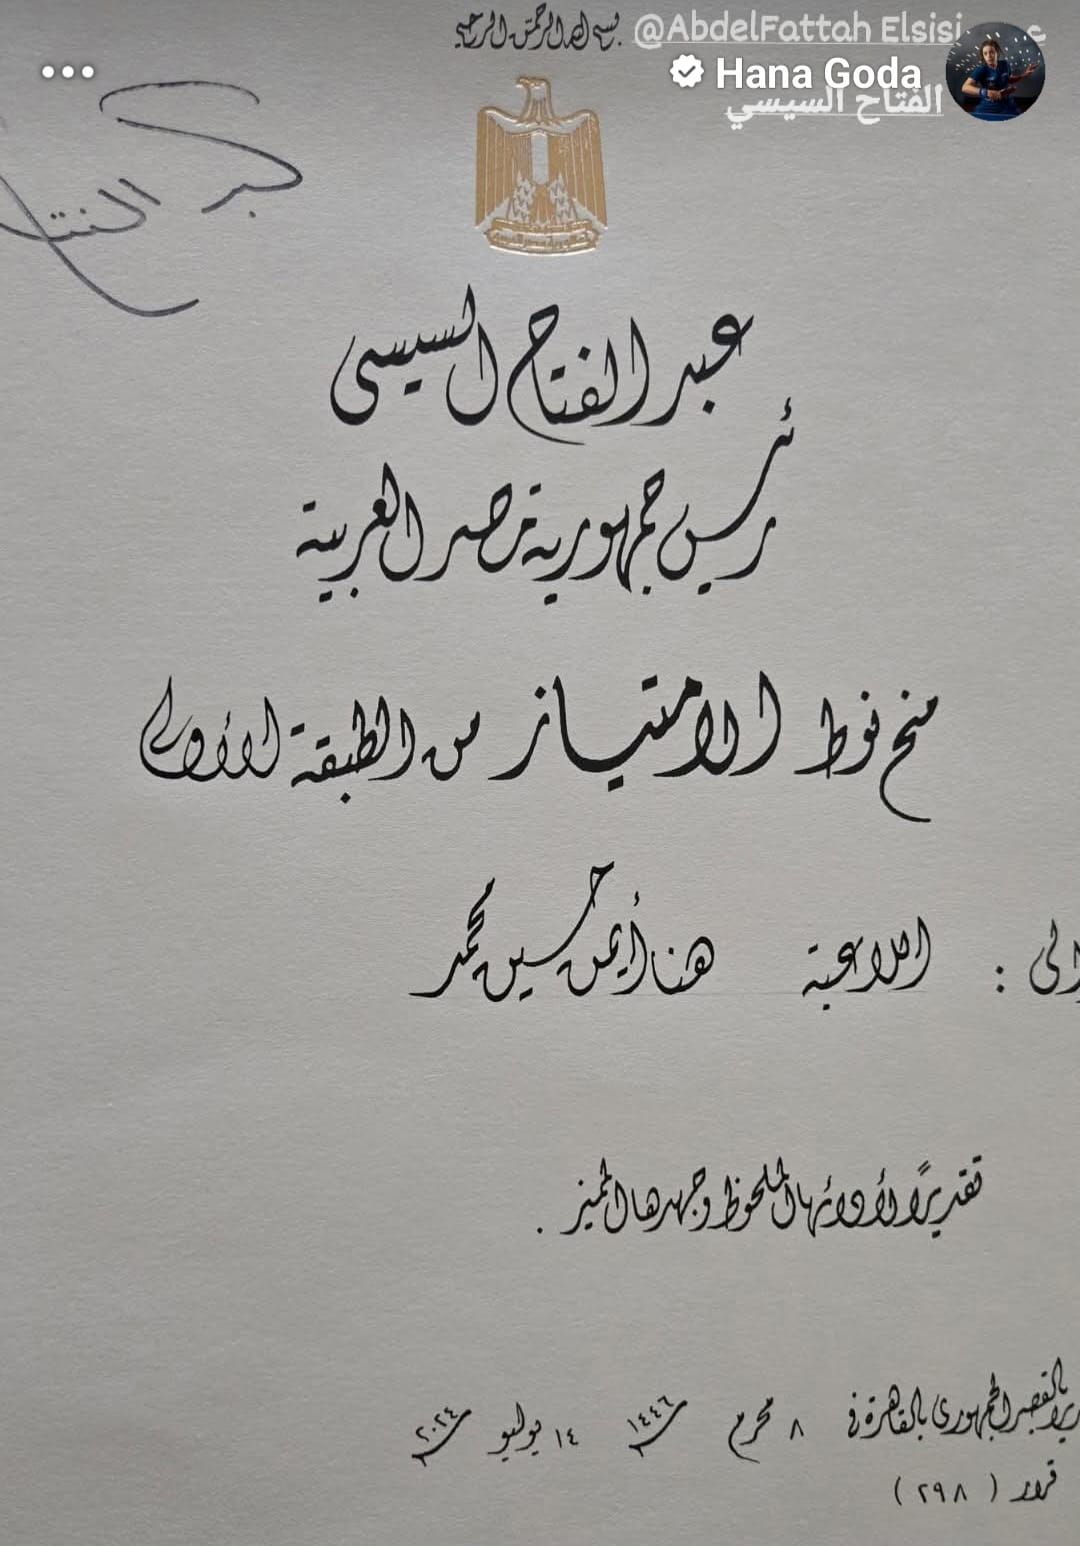 بسم الله الرحمن الرحيم
@AbdelFattah Elsisi
Hana Goda
الفتاح السيسي
جمهورية مصر العربية
عبد الفتاح السيسى
رئيس جمهورية مصر العربية
منح نوط الامتياز من الطبقة الأولى
إلى : اللاعبة هنا أيمن حسين محمد
تقديرًا لأدائها الملحوظ وجهدها المميز .
بالقصر الجمهورى بالقاهرة فى ٨ محرم سنة ١٤٤٦ ١٤ يوليو سنة ٢٠٢٤
قرار ( ٢٩٨ )